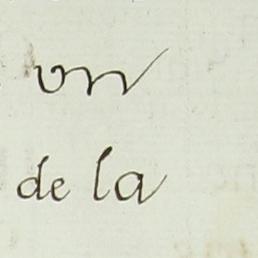 on
de la